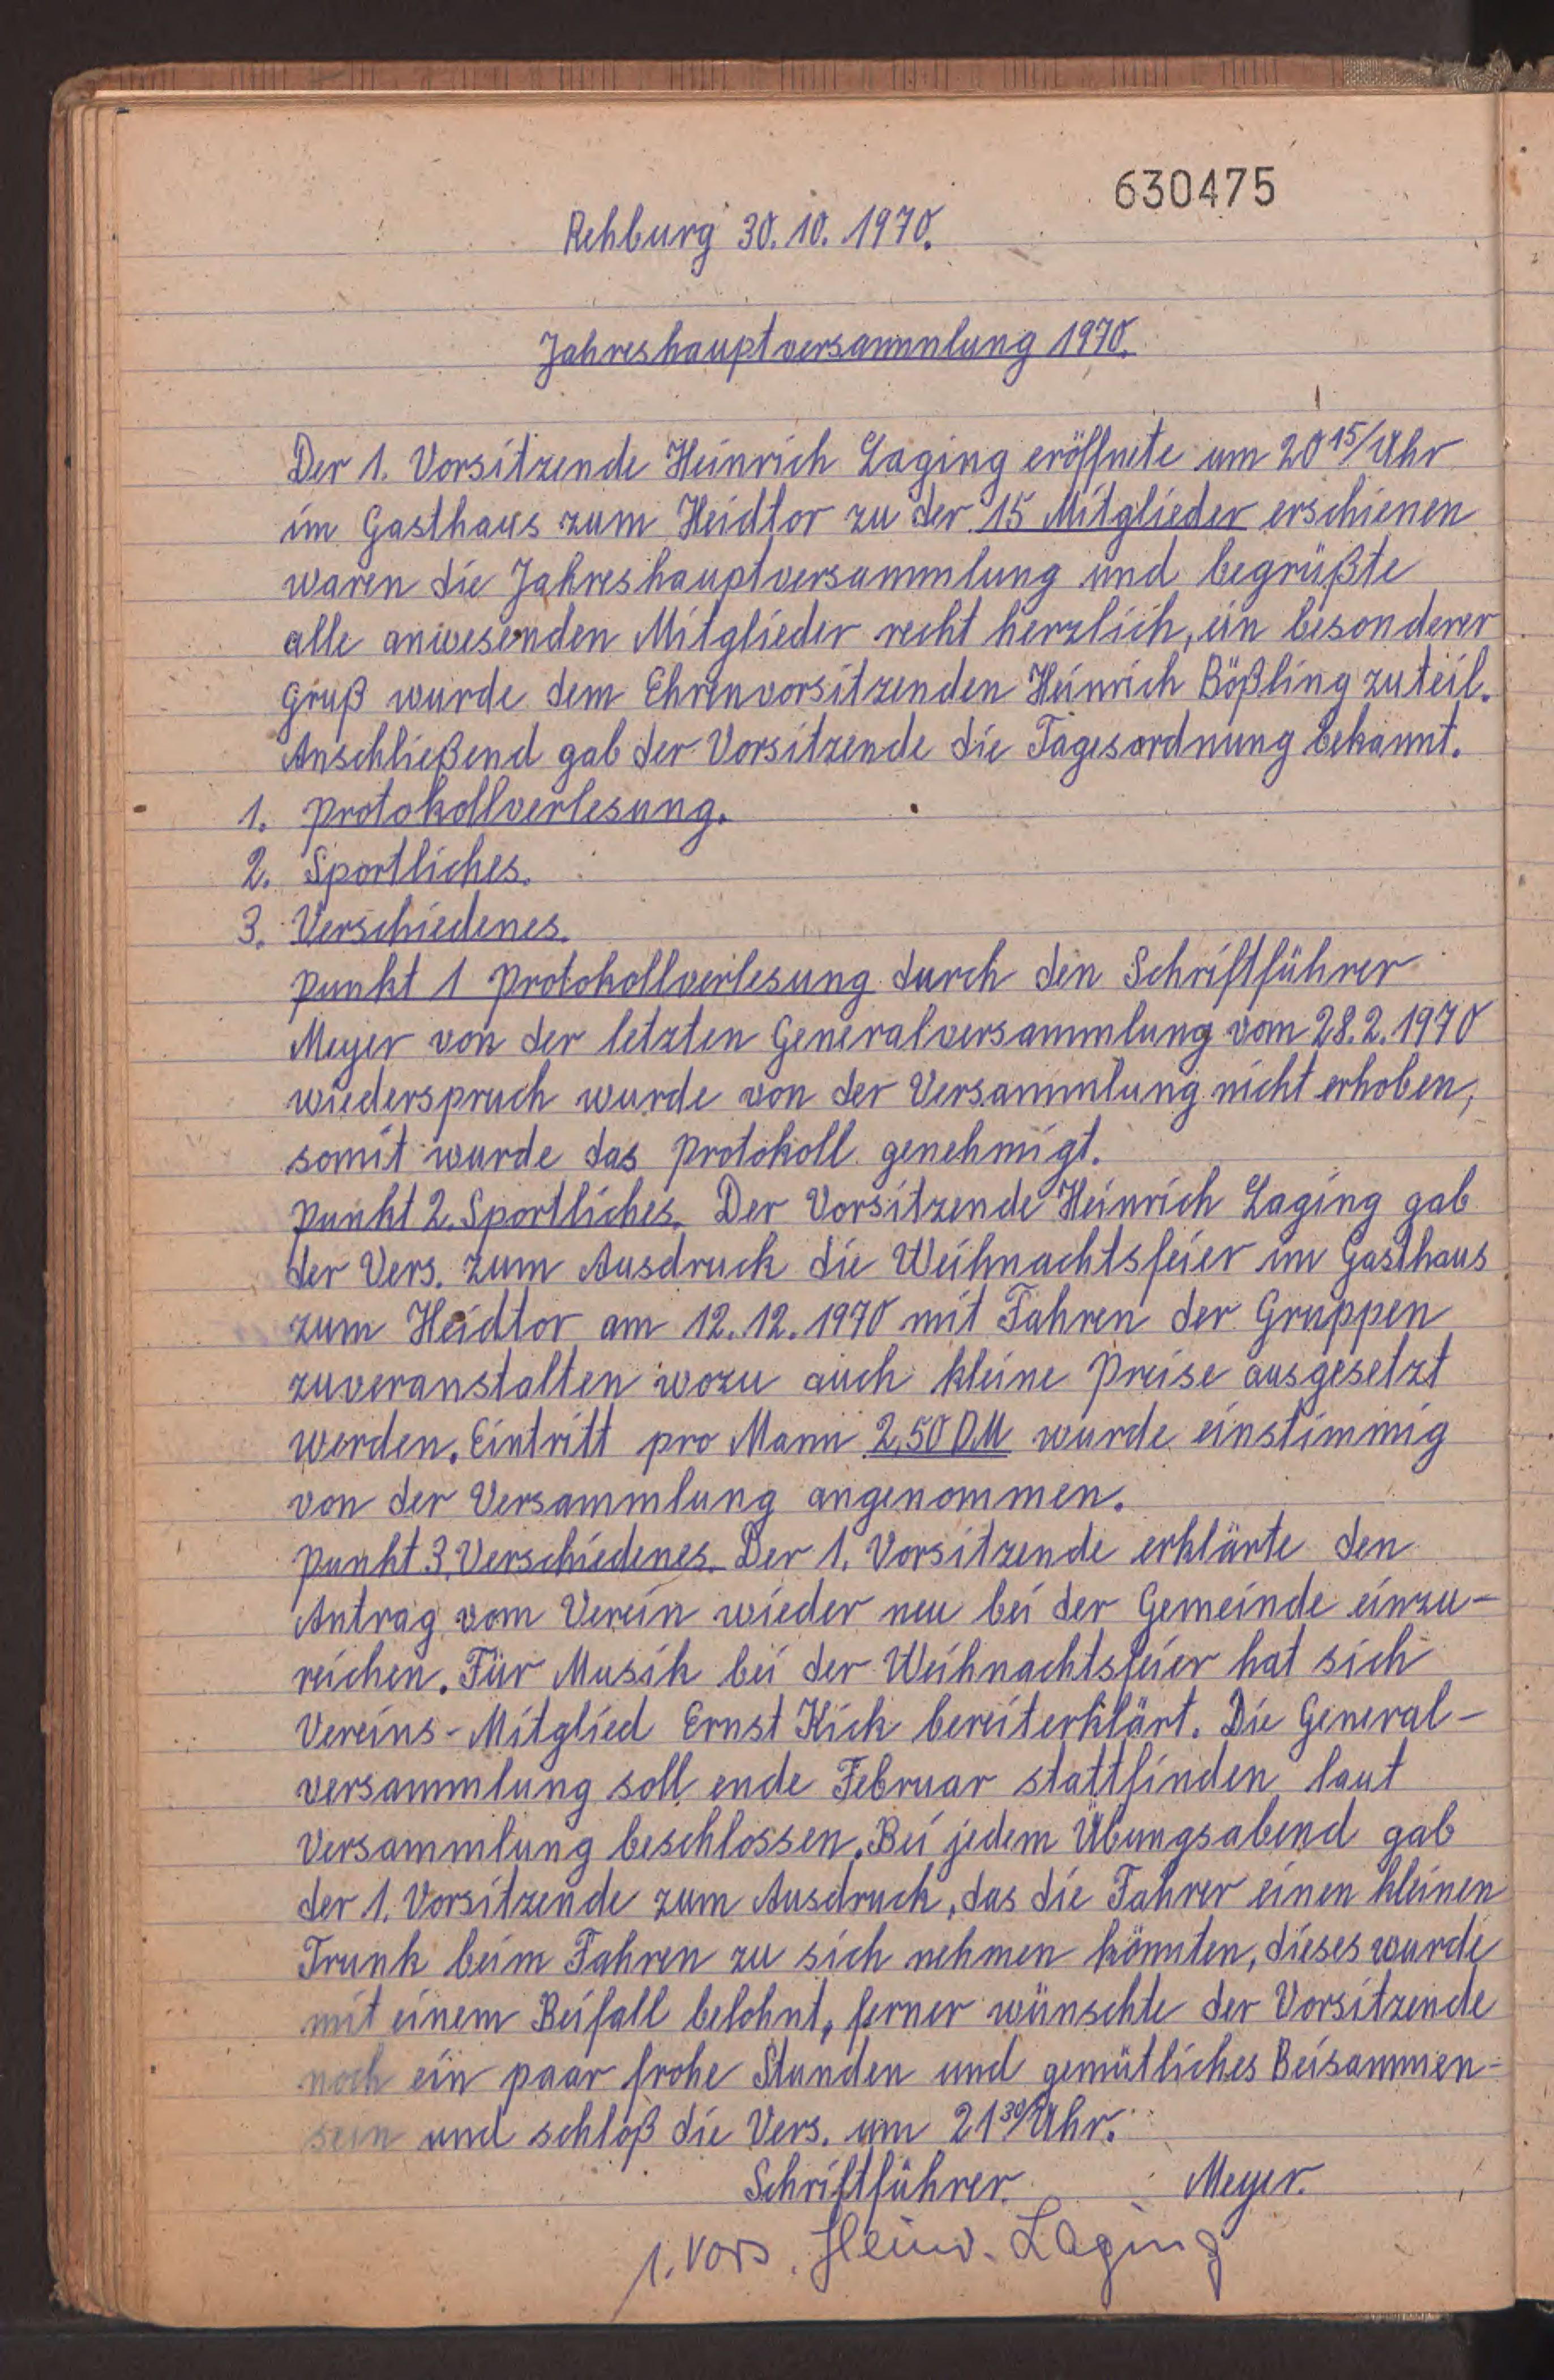 630475
Rehburg 30.10.1970.
Jahreshauptversammlung 1970.
Der 1. Vorsitzende Heinrich Laging eröffnete um 20 15/Uhr
im Gasthaus zum Heidtor zu der 15 Mitglieder erschienen
waren die Jahreshauptversammlung und begrüßte
alle anwesenden Mitglieder recht herzlich, ein besonderer
Gruß wurde dem Ehrenvorsitzenden Heinrich Bößling zuteil.
Anschließend gab der Vorsitzende die Tagesordnung bekannt.
1. Protokollverlesung.
2. Sportliches.
3. Verschiedenes.
Punkt 1 Protokollverlesung durch den Schriftführer
Meyer von der letzten Generalversammlung vom 28.2.1970
wiederspruch wurde von der Versammlung nicht erhoben,
somit wurde das Protokoll genehmigt.
Punkt 2. Sportliches. Der Vorsitzende Heinrich Laging gab
der Vers. zum Ausdruck die Weihnachtsfeier im Gasthaus
zum Heidtor am 12.12.1970 mit Fahren der Gruppen
zuveranstalten wozu auch kleine Preise ausgesetzt
werden. Eintritt pro Mann 2,50 DM wurde einstimmig
von der Versammlung angenommen.
Punkt 3. Verschiedenes. Der 1. Vorsitzende erklärte den
Antrag vom Verein wieder neu bei der Gemeinde einzu-
reichen. Für Musik bei der Weihnachtsfeier hat sich
Vereins-Mitglied Ernst Kick bereiterklärt. Die General-
versammlung soll ende Februar stattfinden laut
Versammlung beschlossen. Bei jedem Übungsabend gab
der 1. Vorsitzende zum Ausdruck, das die Fahrer einen kleinen
Trunk beim Fahren zu sich nehmen könnten, dieses wurde
mit einem Beifall belohnt, ferner wünschte der Vorsitzende
noch ein paar frohe Stunden und gemütliches Beisammen-
sein und schloß die Vers. um 21 30/Uhr.
Schriftführer. Meyer.
1. Vors. Heinr. Laging